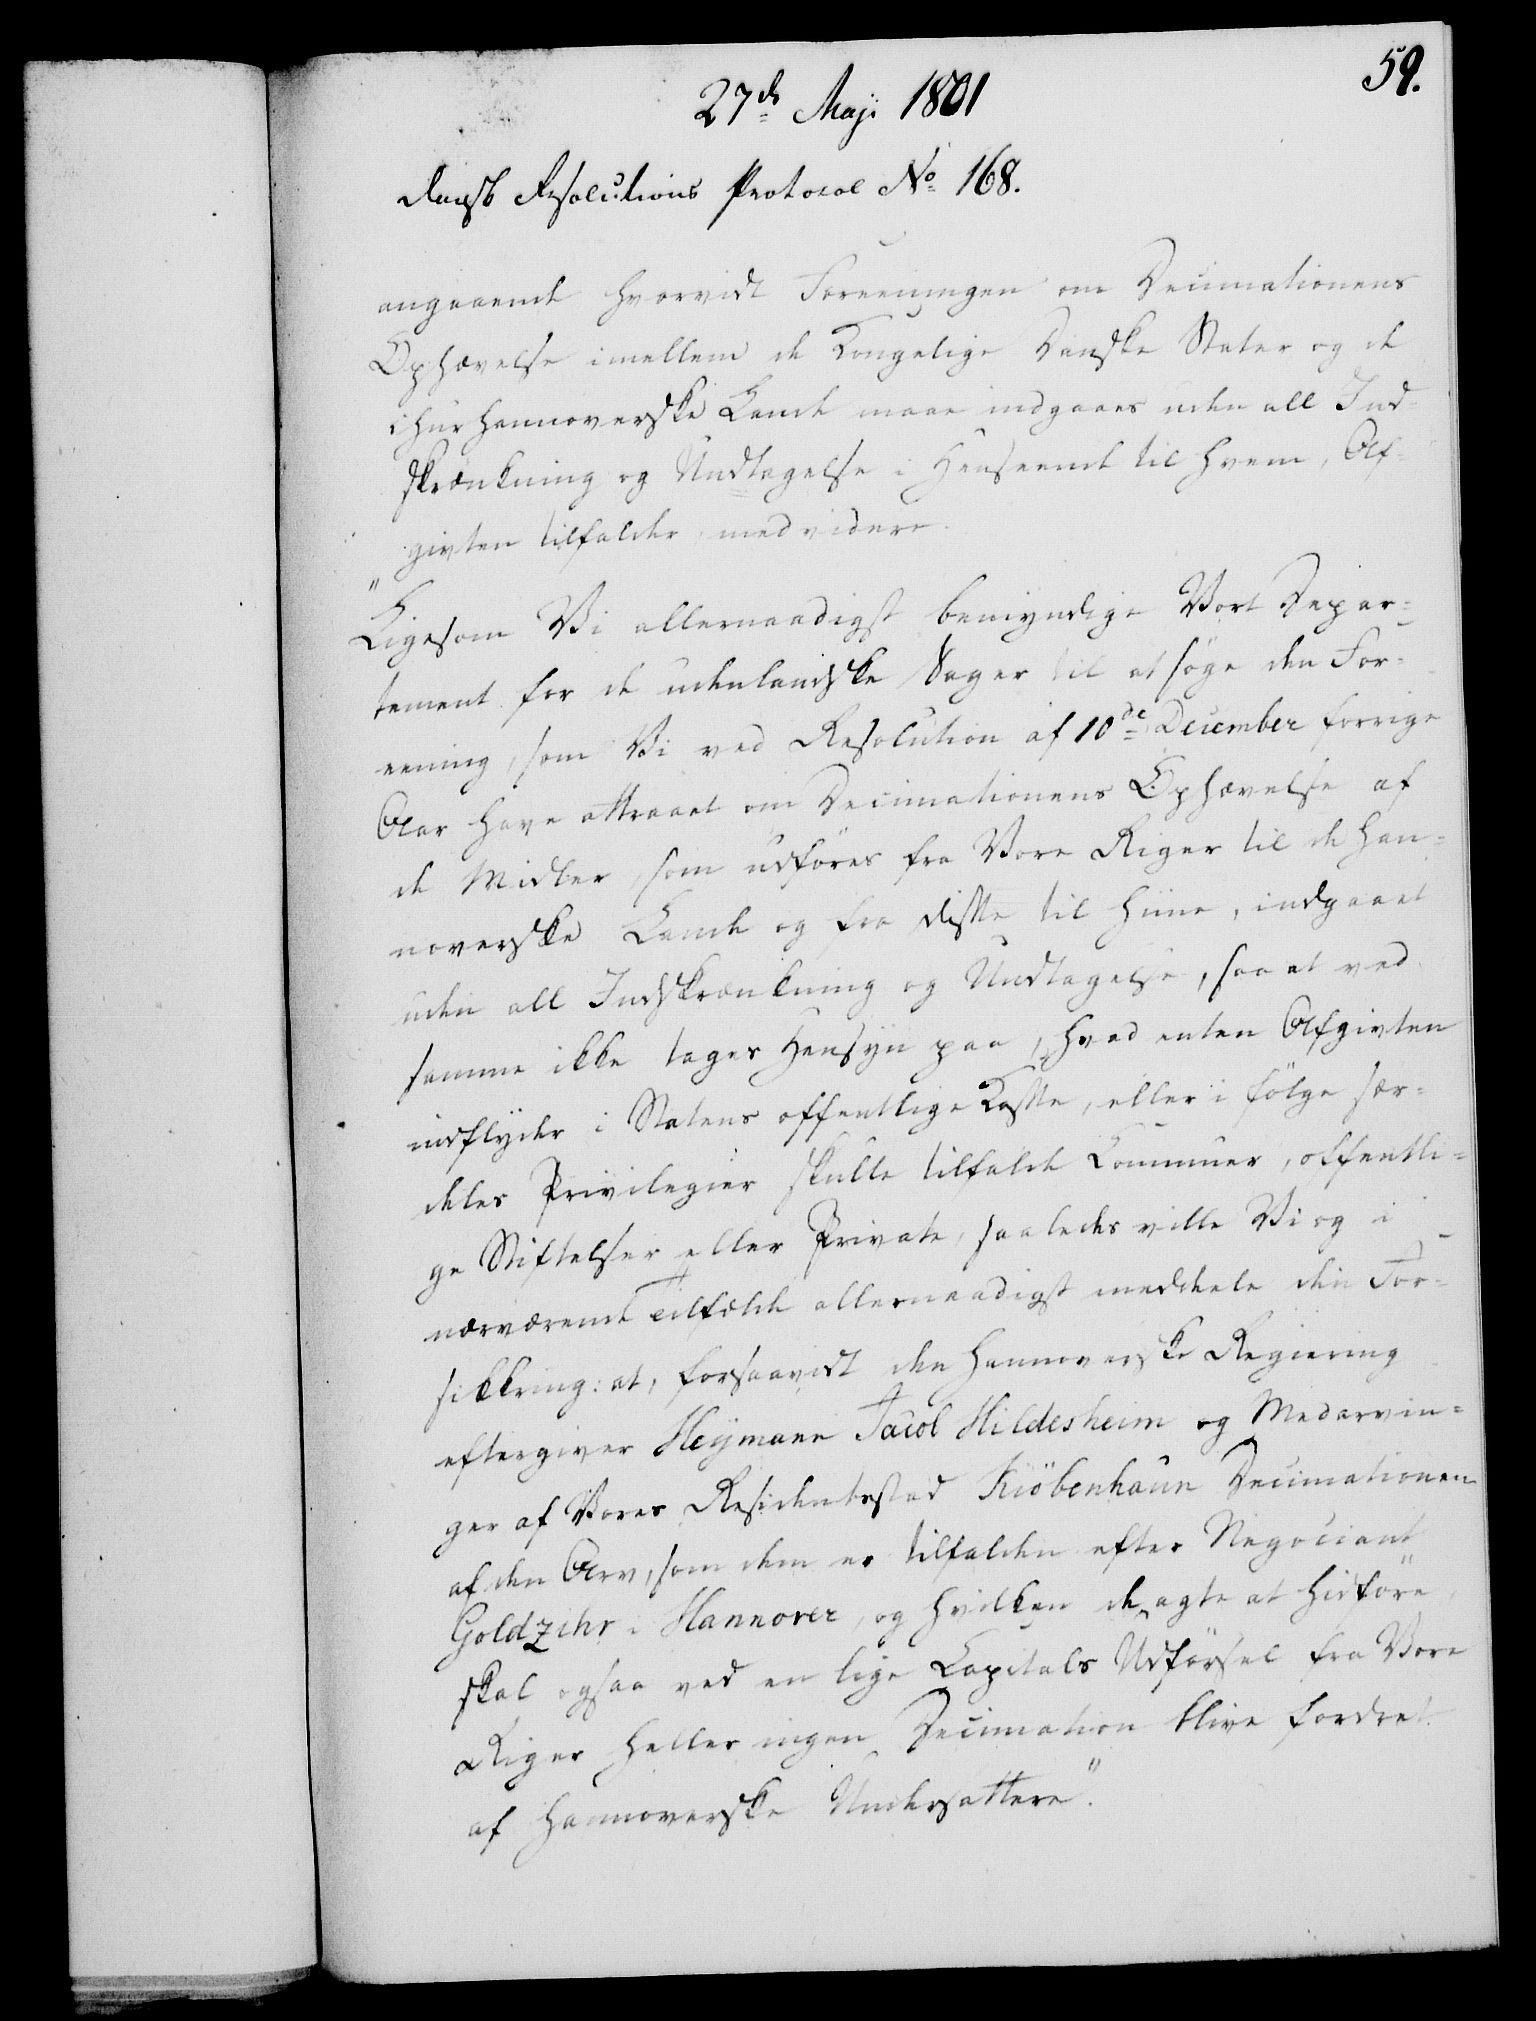 59.
27de Maji 1801
Dansk Resolutions Protocol No 168.
angaaende hvorvidt Foreeningen om Decimationens
Ophævelse imellem de Kongelige Danske Stater og de
chur hannoverske Lande maae indgaaes uden all Ind-
skrænkning og Undtagelse i Henseende til hvem, Af-
givten tilfalder, med videre.
"Ligesom Vi allernaadigst bemyndige Vort Depar-
tement for de udenlandske Sager til at søge den For-
eening, som Vi ved Resolution af 10de December forrige
Aar have attraaet om Decimationens Ophævelse af
de Midler, som udføres fra Vore Riger til de han-
noverske Lande og fra disse til hiine, indgaaet
uden all Indskrænkning og Undtagelse, saa at ved
samme ikke tages Hensyn paa, hvad enten Afgivten
indflyder i Statens offentlige Kasse, eller i følge sær-
deles Privilegier skulle tilfalde Communer, offentli-
ge Stiftelser eller Private, saaledes ville Vi og i
nærværende Tilfælde allernaadigst meddele den For-
sikkring: at, forsaavidt den hannoverske Regiering
eftergiver Heymann Jacob Hildesheim og Medarvin-
ger af Vores Residentsstad Kiöbenhaun Decimationen
af den Arv, som dem er tilfalden efter Negociant
Goldzihr i Hannover, og hvilken de agte at hidföre
skal ogsaa ved en lige Capitals Udförsel fra Vore
Riger heller ingen Decimation blive fordret
af hannoverske Undersattere".